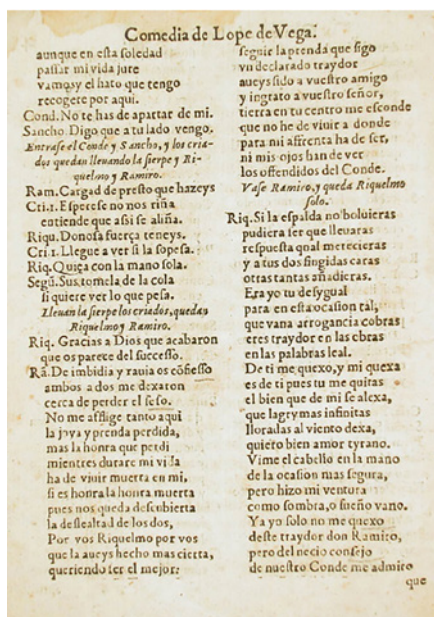 Comedia de Lope de Vega.
aunque en esta soledad
passar mi vida jure
vamos, y el hato que tengo
recogere por aqui.
Cond. No te has de apartar de mi.
Sancho. Digo que a tu lado vengo.
Entrase el Conde y Sancho, y los cria-
dos quedan lleuando la sierpe y Ri-
quelmo y Ramiro.
Ram. Cargad de presto que hazeys
Cri.1. Esperese no nos riña
entiende que assi se aliña.
Riqu. Donosa fuerça teneys.
Cri.1. Llegue a ver si la sopesa.
Riq. Quiça con la mano sola.
Segũ. Sus, tomela de la cola
si quiere ver lo que pesa.
Lleuan la sierpe los criados, quedan
Riquelmo y Ramiro.
Riq. Gracias a Dios que acabaron
que os parece del successo.
Rã. De imbidia y rauia os cõfiesso
ambos a dos me dexaron
cerca de perder el seso.
No me aflige tanto aqui
la joya y prenda perdida,
mas la honra que perdi
mientres durare mi vida
ha de viuir muerta en mi,
si es honra la honra muerta
pues nos queda descubierta
la deslealtad de los dos,
Por vos Riquelmo por vos
que la aueys hecho mas cierta,
queriendo ser el mejor:
seguir la prenda que sigo
vn declarado traydor
aueys sido a vuestro amigo
y ingrato a vuestro señor,
tierra en tu centro me esconde
que no he de viuir a donde
para mi affrenta ha de ser,
ni mis ojos han de ver
los offendidos del Conde.
Vase Ramiro, y queda Riquelmo
solo.
Riq. Si la espalda no boluieras
pudiera ser que lleuaras
respuesta qual merecieras
y a tus dos fingidas caras
otras tantas añadieras.
Era yo tu desygual
para en esta ocasion tal,
que vana arrogancia cobras
eres traydor en las obras
en las palabras leal.
De ti me quexo, y mi quexa
es de ti pues tu me quitas
el bien que de mi se alexa,
que lagrymas infinitas
lloradas al viento dexa,
quieto bien amor tyrano.
Vime el cabello en la mano
de la ocasion mas segura,
pero hizo mi ventura
como sombra, o sueño vano.
Ya yo solo no me quexo
deste traydor don Ramiro,
pero del necio consejo
de nuestro Conde me admiro
que